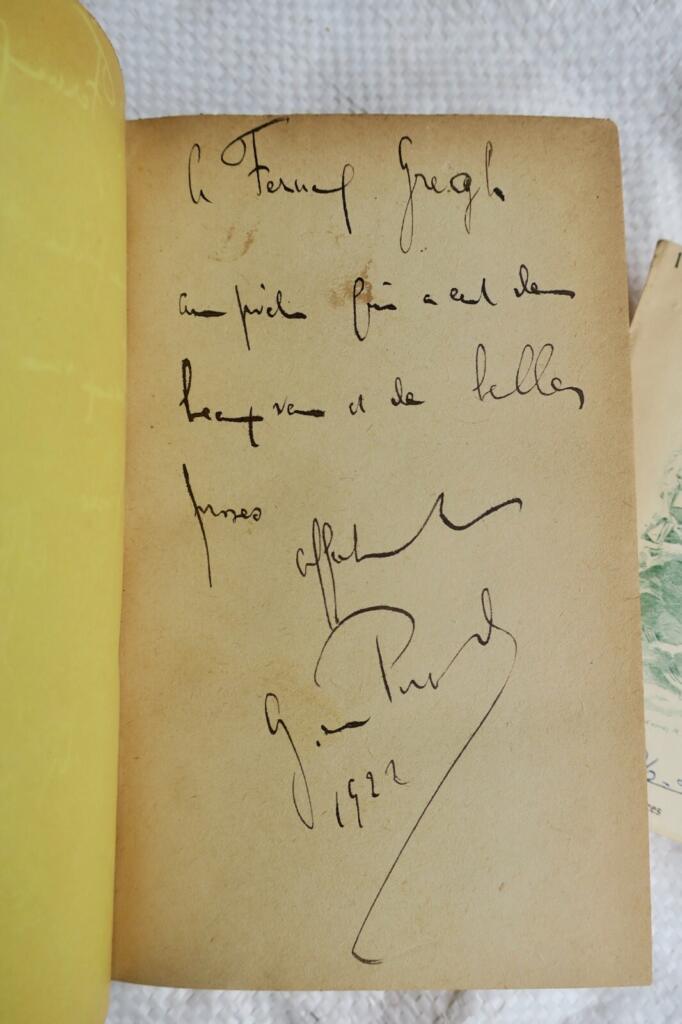 à Fernand Gregh
au poète qui a écrit de
beaux vers et de belles
proses
Picard
1922